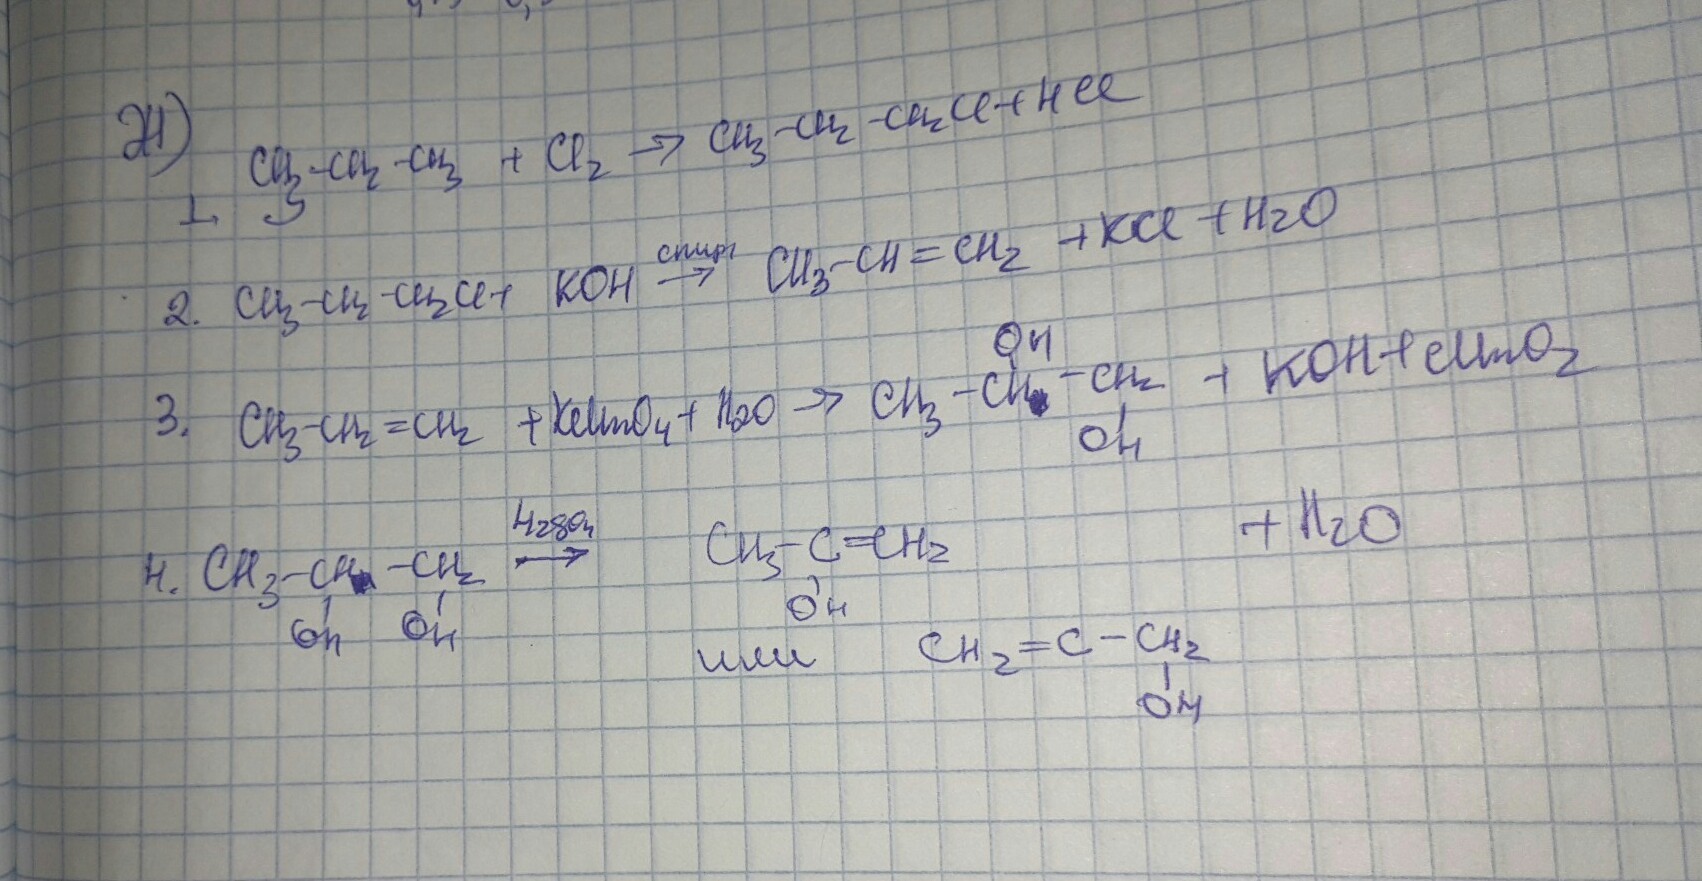 24)
1. CH3-CH2-CH3 + Cl2 → CH3-CH2-CH2Cl+HCl
2. CH3-CH2-CH2Cl+ KOH спирт→ CH3-CH=CH2 +KCl +H2O
OH
3. CH3-CH2=CH2 +KMnO4+H2O → CH3-CH-CH2 + KOH+MnO2
OH
H2SO4
4. CH3-CH-CH2 → CH3-C=CH2 +H2O
OH OH OH
или CH2=C-CH2
OH